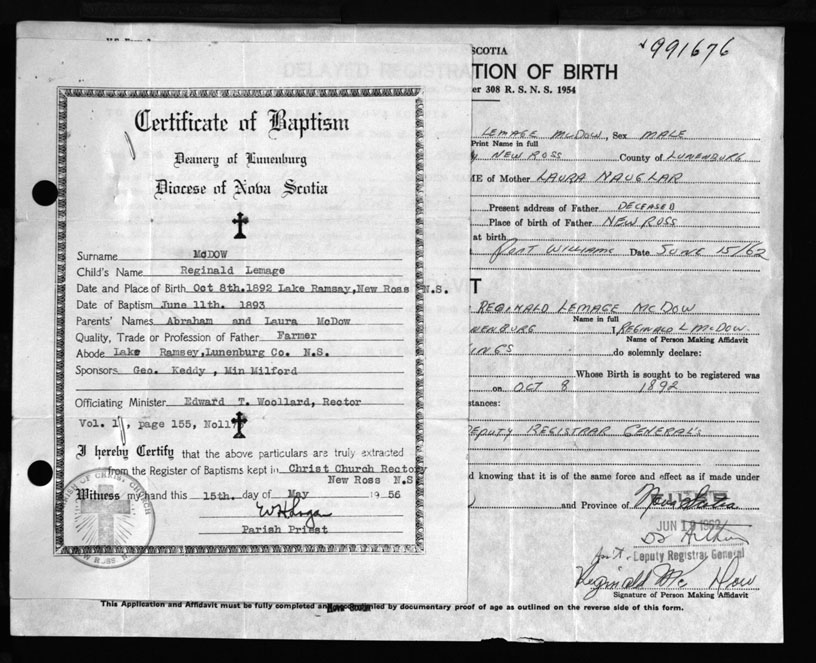 Certificate of Baptism
Deanery of Lunenburg
Diocese of Nova Scotia
Surname McDOW
Child's Name Reginald Lemage
Date and Place of Birth Oct 8th.1892 Lake Ramsay,New Ross N.S.
Date of Baptism June 11th. 1893
Parents' Names Abraham and Laura McDow
Quality, Trade or Profession of Father Farmer
Abode Lake Ramsey,Lunenburg Co. N.S.
Sponsors Geo. Keddy , Min Milford
Officiating Minister Edward T. Woollard, Rector
Vol. 1, page 155,
I hereby Certify that the above particulars are truly extracted
from the Register of Baptisms kept in Christ Church Rectory
New Ross N.S
Witness my hand this 15th. day of May 1956
Parish Priest
SCOTIA
991676
DELAYED REGISTRATION OF BIRTH
308 R. S. N. S. 1954
LEMAGE McDOW, Sex MALE
Print Name in full
NEW ROSS County of LUNENBURG
ME of Mother LAURA NAUGLAR
Present address of Father DECEASED
Place of birth of Father NEW ROSS
at birth
PORT WILLIAMS Date JUNE 15/62
REGINALD LEMAGE McDOW
Name in full
NENBURG I, REGINALD L McDOW
Name of Person Making Affidavit
INGS do solemnly declare:
Whose Birth is sought to be registered was
on OCT 8 1892
stances:
DEPUTY REGISTRAR GENERAL'S
d knowing that it is of the same force and effect as if made under
and Province of Nova Scotia
JUN 19 1962
Deputy Registrar General
Reginald Mc Dow
Signature of Person Making Affidavit
This Application and Affidavit must be fully completed and accompanied by documentary proof of age as outlined on the reverse side of this form.